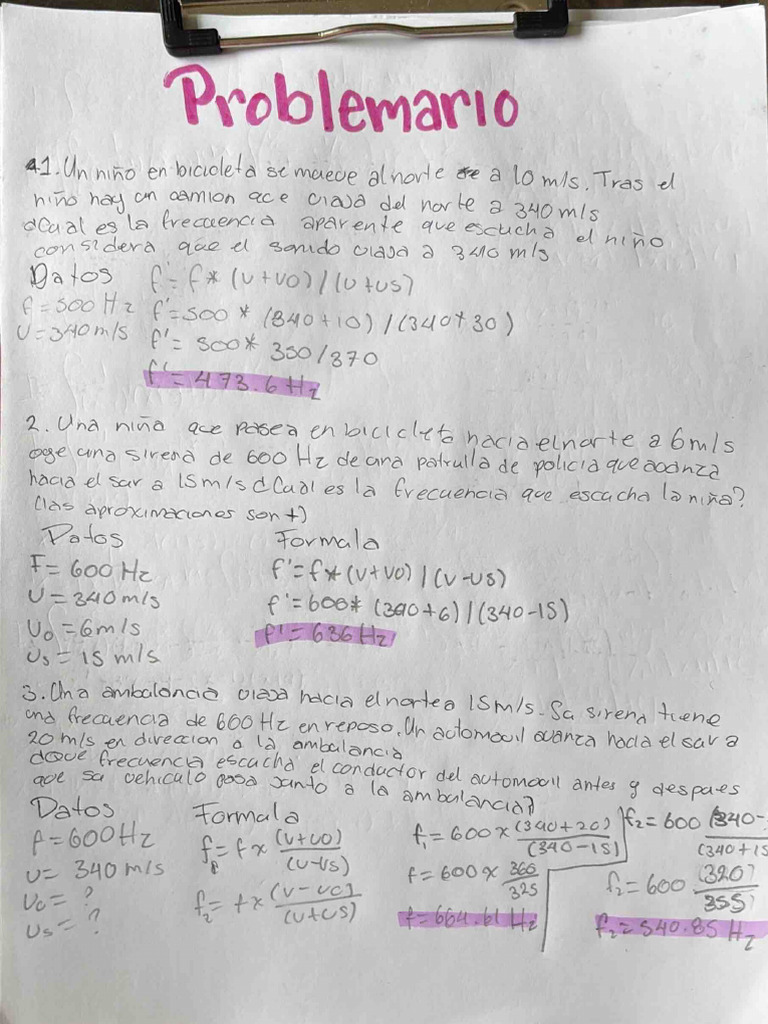 Problemario
1. Un niño en bicicleta se mueve al norte a 10 m/s. Tras el
niño hay un camion que viaja del norte a 340 m/s
¿Cual es la frecuencia aparente que escucha el niño
considera que el sonido viaja a 340 m/s
Datos f'= f* (v+vo) / (v+vs)
f=500 Hz f'=500 * (340+10) / (340+30)
v=340m/s f'= 500* 350/370
f'= 473.6 Hz
2. Una niña que pasea en bicicleta hacia el norte a 6m/s
oye una sirena de 600 Hz de una patrulla de policia que avanza
hacia el sur a 15m/s ¿Cual es la frecuencia que escucha la niña?
(las aproximaciones son +)
Datos Formula
F= 600 Hz f'=f*(v+vo) / (v-vs)
v= 340 m/s f'=600* (340+6) / (340-15)
vo =6m/s f'= 636 Hz
vs = 15 m/s
3. Una ambulancia viaja hacia el norte a 15m/s. Su sirena tiene
una frecuencia de 600 Hz en reposo. Un automovil avanza hacia el sur a
20 m/s en direccion a la ambulancia
¿Que frecuencia escucha el conductor del automovil antes y despues
que su vehiculo pasa junto a la ambulancia?
Datos Formula f₁=600 x (340+20)/(340-15) f₂=600 (340-/(340+15
f=600Hz f=f x (v+vo)/(v-vs)
v= 340 m/s f=600 x 360/325 f₂=600 (320)/355)
vo= ? f₂= f x (v-vo)/(v+vs)
vs= ? f=664.61 Hz f₂=540.85 Hz